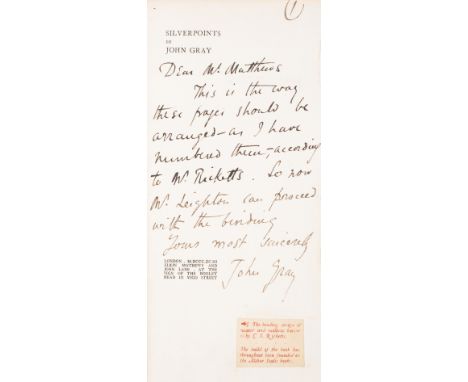 1
SILVERPOINTS
BY
JOHN GRAY
Dear Mr. Matthews
This is the way
these pages should be
arranged—as I have
numbered them,—according
to Mr. Ricketts. So now
Mr. Leighton can proceed
with the binding
Yours most sincerely
John Gray
LONDON MDCCCXCIII
ELKIN MATHEWS AND
JOHN LANE AT THE
SIGN OF THE BODLEY
HEAD IN VIGO STREET
The binding design of
is by C. S. Ricketts.
The build of the book has
throughout been founded on
the Aldine Italic books.